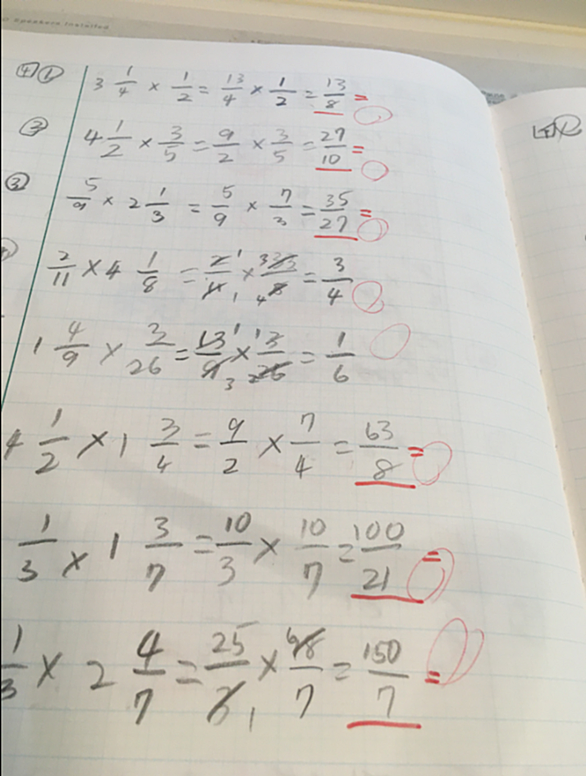 Speakers Installed
4 ① 3 1/4 × 1/2 = 13/4 × 1/2 = 13/8 =
② 4 1/2 × 3/5 = 9/2 × 3/5 = 27/10 =
③ 5/9 × 2 1/3 = 5/9 × 7/3 = 35/27 =
2/11 × 4 1/8 = 2 1/11 1 × 3 33/4 8 = 3/4
1 4/9 × 3/26 = 13 1/9 3 × 1 3/2 26 = 1/6
4 1/2 × 1 3/4 = 9/2 × 7/4 = 63/8 =
1/3 × 1 3/7 = 10/3 × 10/7 = 100/21 =
1/3 × 2 4/7 = 25/3 1 × 6 18/7 = 150/7 =